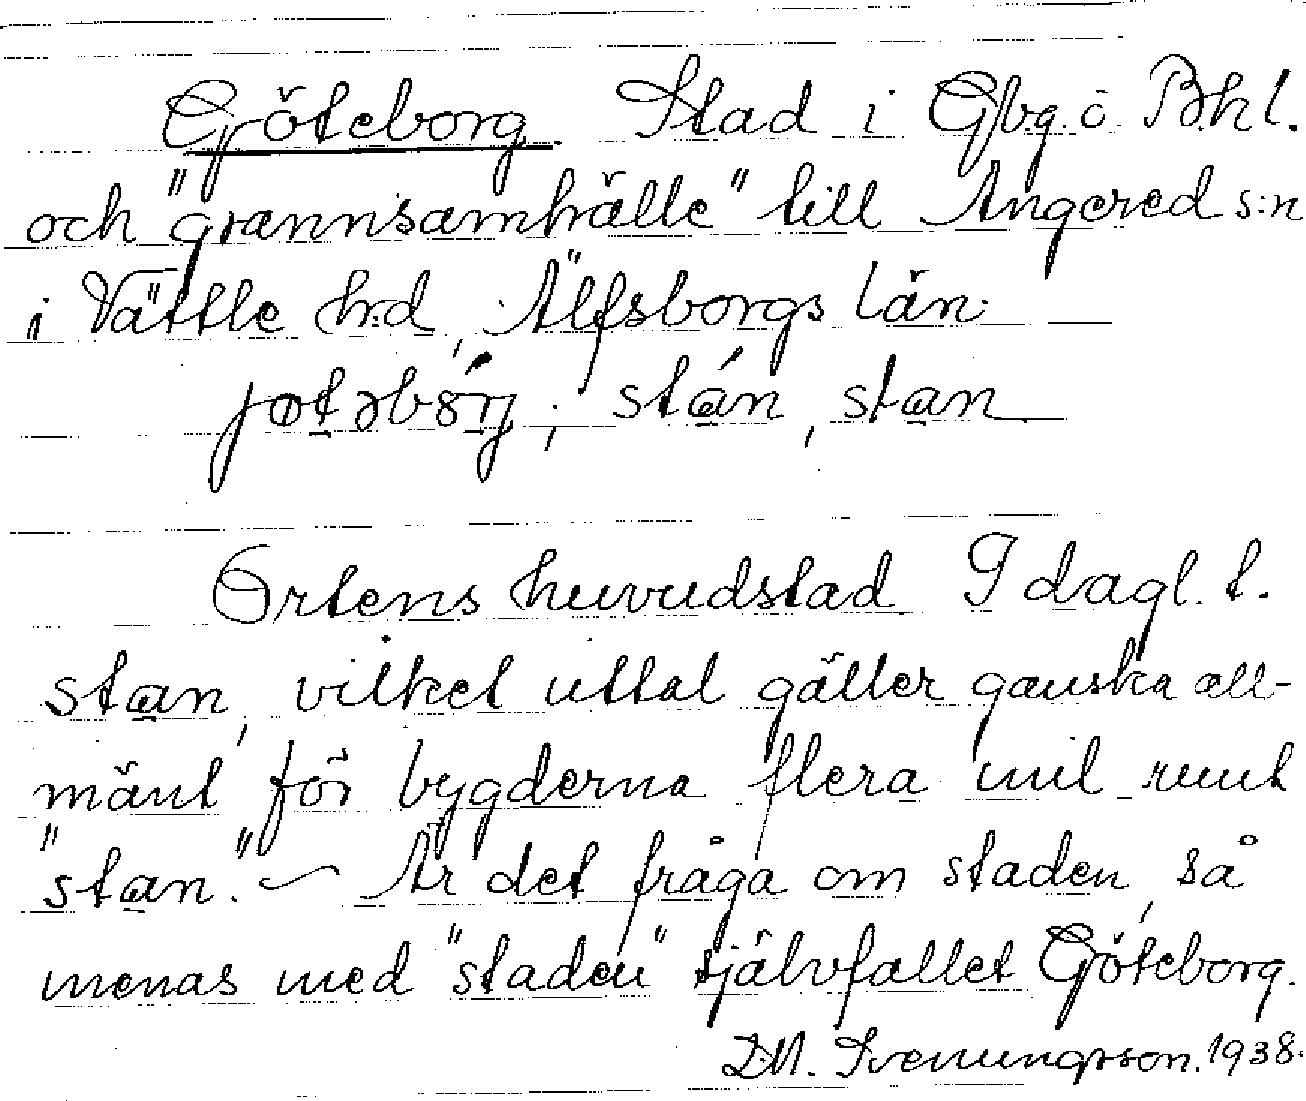 Göteborg Stad i Gbg. o. Bohl.
och "grannsamhälle" till Angered s:n
i Vättle h:d, Älfsborgs län.
jøtəbórj; stán, stan
Ortens huvudstad I dagl. t.
stan, vilket uttal gäller ganska all-
mänt för bygderna flera mil runt
"stan." — Är det fråga om staden, så
menas med "staden" självfallet Göteborg.
Svenungsson. 1938.